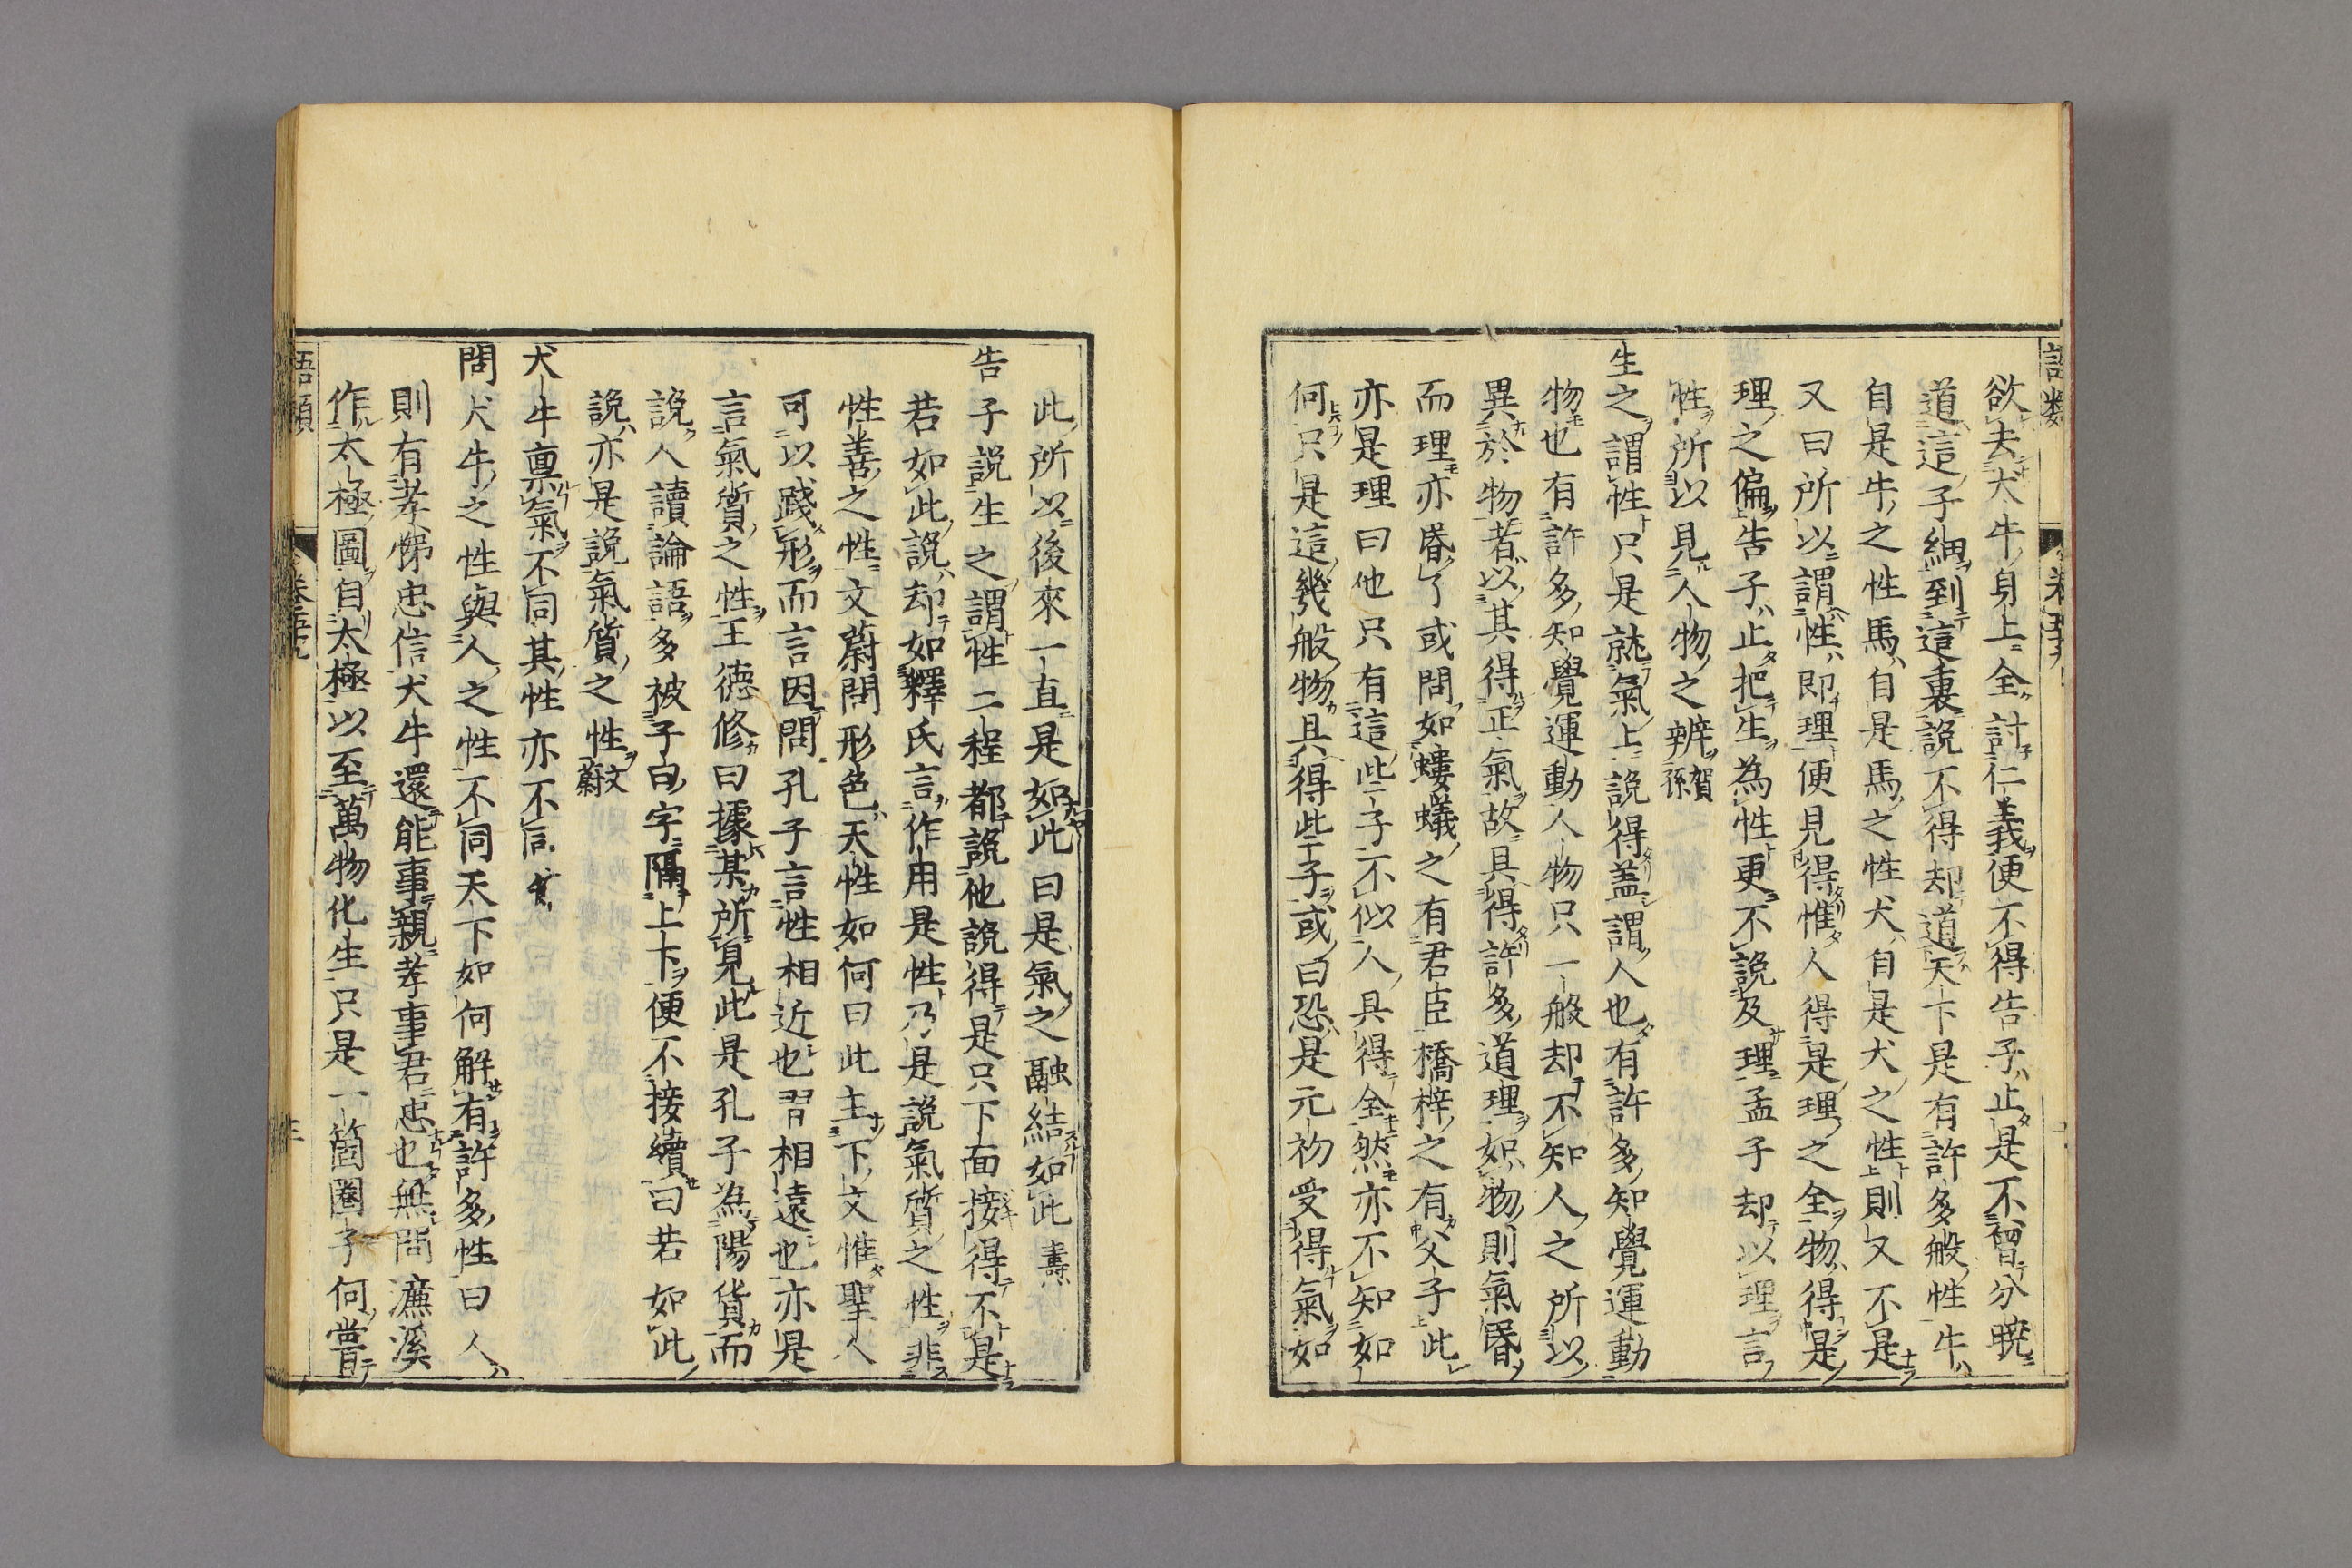 欲去犬牛身上全討仁義便不得告子止是不曾分曉
道這子細到這裏說不得却道天下是有許多般性牛
自是牛之性馬自是馬之性犬自是犬之性則又不是
又曰所以謂性即理便見得惟人得是理之全物得是
理之偏告子止把生為性更不說及理孟子却以理言
性所以見人物之辨賀孫
生之謂性只是就氣上說得蓋謂人也有許多知覺運動
物也有許多知覺運動人物只一般却不知人之所以
異於物者以其得正氣故具得許多道理如物則氣昏
而理亦昏了或問如螻蟻之有君臣橋梓之有父子此
亦是理曰他只有這些子不似人具得全然亦不知如
何只是這幾般物具得些子或曰恐是元初受得氣如
此所以後來一直是如此曰是氣之融結如此燾
告子說生之謂性二程都說他說得是只下面接得不是
若如此說却如釋氏言作用是性乃是說氣質之性非
性善之性文蔚問形色天性如何曰此主下文惟聖人
可以踐形而言因問孔子言性相近也習相遠也亦是
言氣質之性王德修曰據某所見此是孔子為陽貨而
說人讀論語多被子曰字隔上下便不接續曰若如此
說亦是說氣質之性文蔚
犬牛稟氣不同其性亦不同
問犬牛之性與人之性不同天下如何解有許多性曰人
則有孝悌忠信犬牛還能事親孝事君忠也無問濂溪
作太極圖自太極以至萬物化生只是一箇圈子何嘗
語類